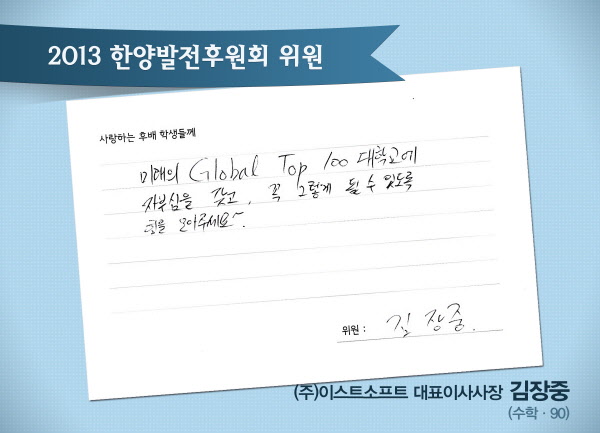 2013 한양발전후원회 위원
사랑하는 후배 학생들께
미래의 Global Top 100 대학교에
자부심을 갖고, 꼭 그렇게 될 수 있도록
힘을 모아주세요~.
위원 : 김 장 중.
(주)이스트소프트 대표이사사장 김장중
(수학 · 90)